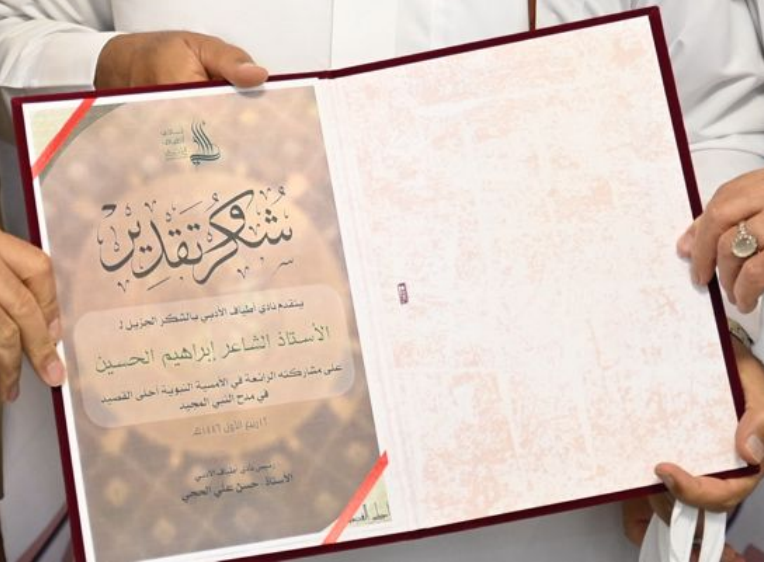 شكر وتقدير
يتقدم نادي أطياف الأدبي بالشكر الجزيل لـ :
الأستاذ الشاعر إبراهيم الحسين
على مشاركته الرائعة في الأمسية النبوية أحلى القصيد
في مدح النبي المجيد
١٢ ربيع الأول ١٤٤٦هـ
رئيس نادي أطياف الأدبي
الأستاذ. حسن علي الحجي